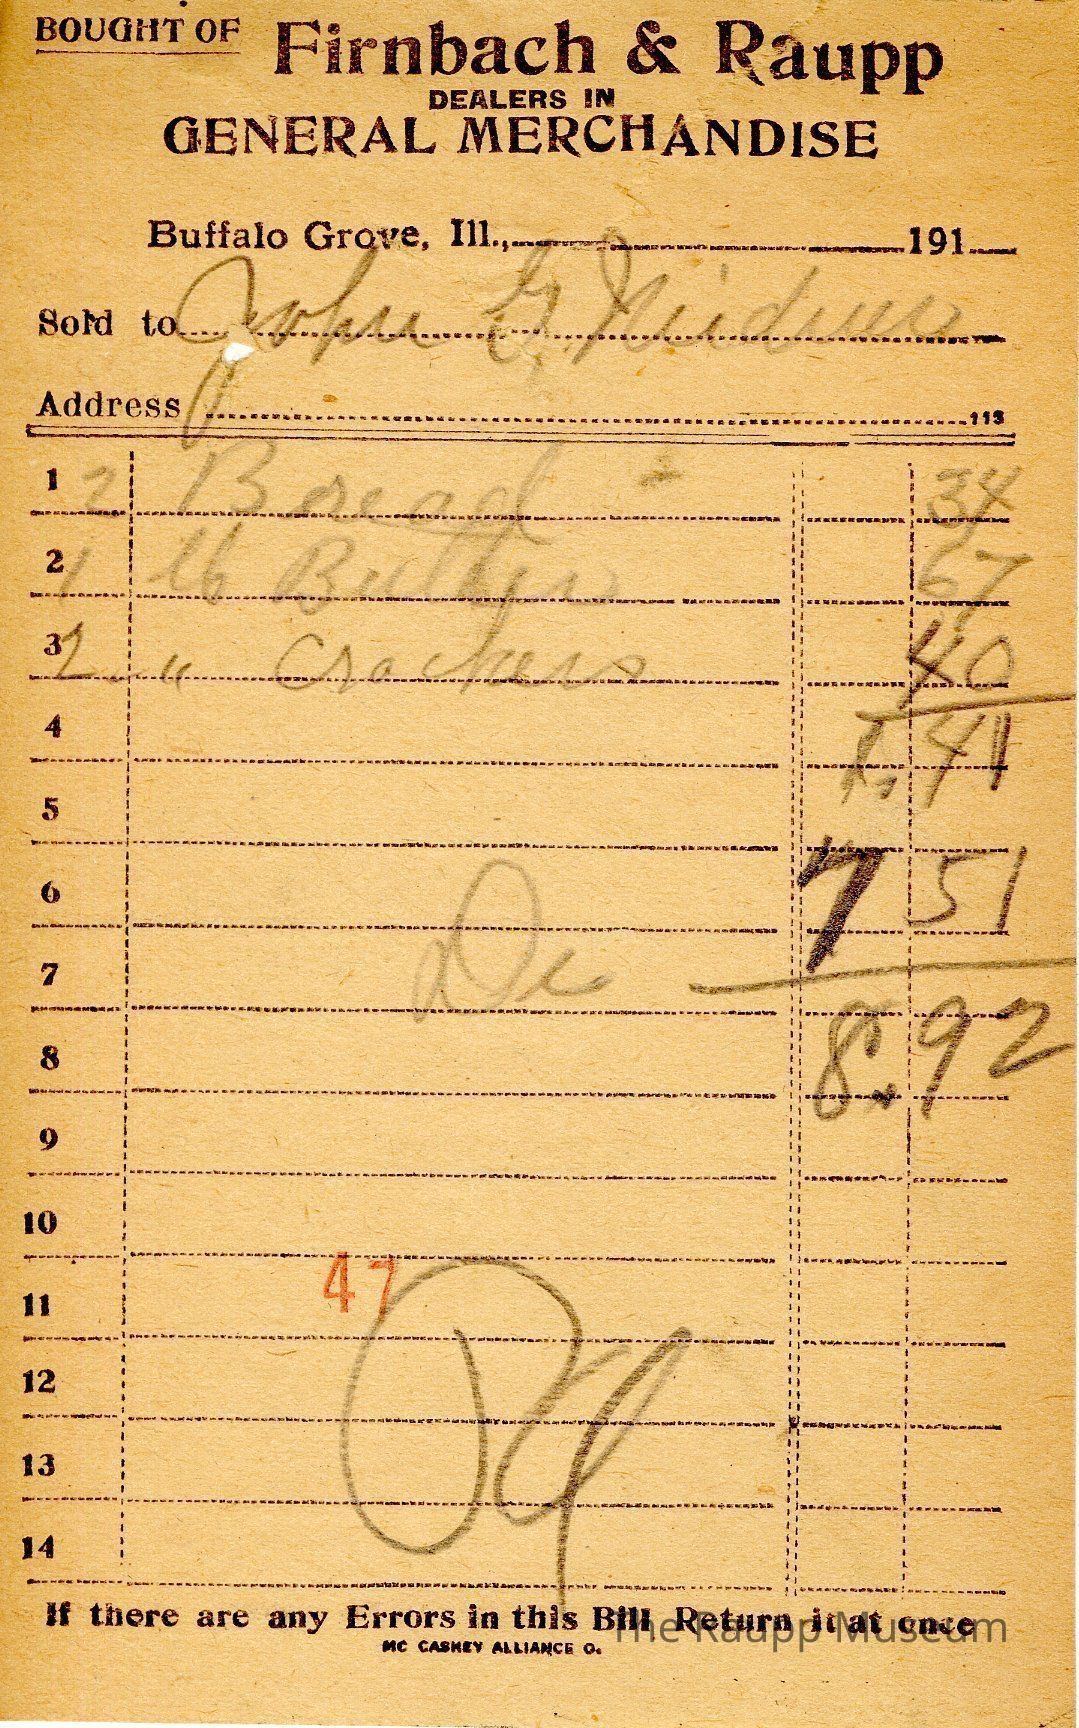 BOUGHT OF Firnbach & Raupp
DEALERS IN
GENERAL MERCHANDISE
Buffalo Grove, Ill., 191
Sold to John G.
Address 113
1 2 Bread 34
2 1 lb Butter 67
3 2 " Crackers 40
4 1.41
5
6 7 51
7
8 8.92
9
10
47
11
12
13
14
If there are any Errors in this Bill Return it at once
The Raupp Museum
MC CASKEY ALLIANCE O.